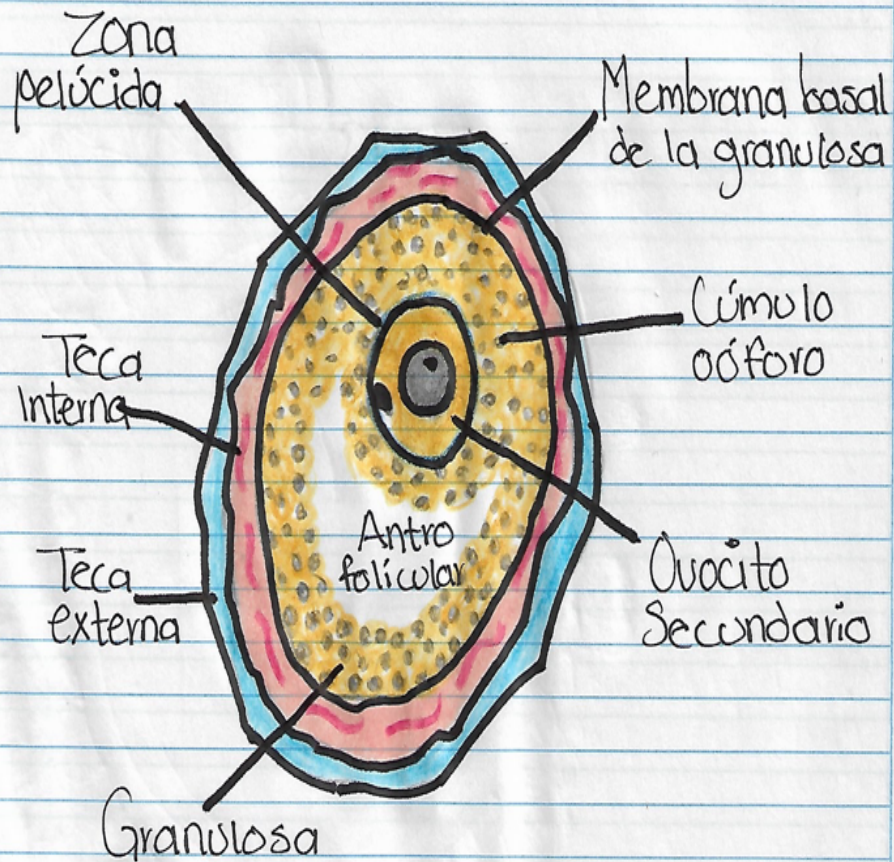 Zona
pelúcida
Membrana basal
de la granulosa
Cúmulo
oóforo
Teca
Interna
Antro
folicular
Teca
externa
Ovocito
Secundario
Granulosa